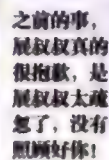 之前的事，
展叔叔真的
很抱歉，是
展叔叔太疏
忽了，没有
照顾好你！